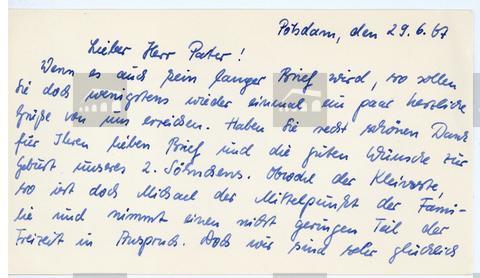 Potsdam, den 29.6.67
Lieber Herr Pater!
Wenn es auch kein langer Brief wird, so sollen
Sie doch wenigstens wieder einmal ein paar herzliche
Grüße von uns erreichen. Haben Sie recht schönen Dank
für Ihren lieben Brief und die guten Wünsche zur
Geburt unseres 2. Söhnchens. Obwohl der Kleinste,
so ist doch Michael der Mittelpunkt der Fami-
lie und nimmt einen nicht geringen Teil der
Freizeit in Anspruch. Doch wir sind sehr glücklich